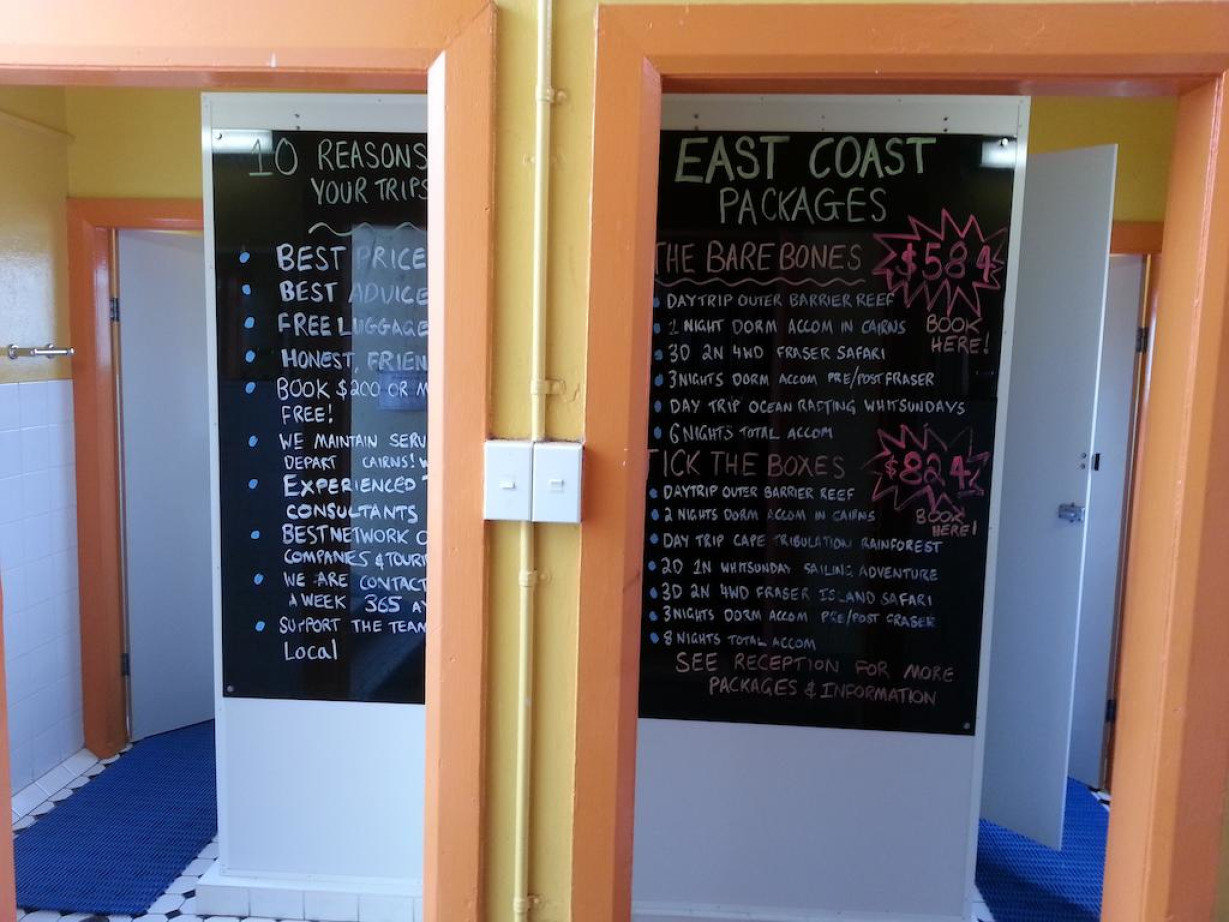 10 REASONS
YOUR TRIPS
BEST PRICE
BEST ADVICE
FREE LUGGAGE
HONEST, FRIEN
BOOK $200 OR M
FREE!
WE MAINTAIN SERV
DEPART CAIRNS! W
EXPERIENCED T
CONSULTANTS
BEST NETWORK O
COMPANIES & TOURI
WE ARE CONTACT
A WEEK 365
SUPPORT THE TEAM
Local
EAST COAST
PACKAGES
THE BARE BONES $584
DAYTRIP OUTER BARRIER REEF
1 NIGHT DORM ACCOM IN CAIRNS
BOOK HERE!
3D 2N 4WD FRASER SAFARI
3 NIGHTS DORM ACCOM PRE/POST FRASER
DAY TRIP OCEAN RAFTING WHITSUNDAYS
6 NIGHTS TOTAL ACCOM
TICK THE BOXES $824
DAYTRIP OUTER BARRIER REEF
2 NIGHTS DORM ACCOM IN CAIRNS
BOOK HERE!
DAY TRIP CAPE TRIBULATION RAINFOREST
2D 1N WHITSUNDAY SAILING ADVENTURE
3D 2N 4WD FRASER ISLAND SAFARI
3 NIGHTS DORM ACCOM PRE/POST FRASER
8 NIGHTS TOTAL ACCOM
SEE RECEPTION FOR MORE
PACKAGES & INFORMATION